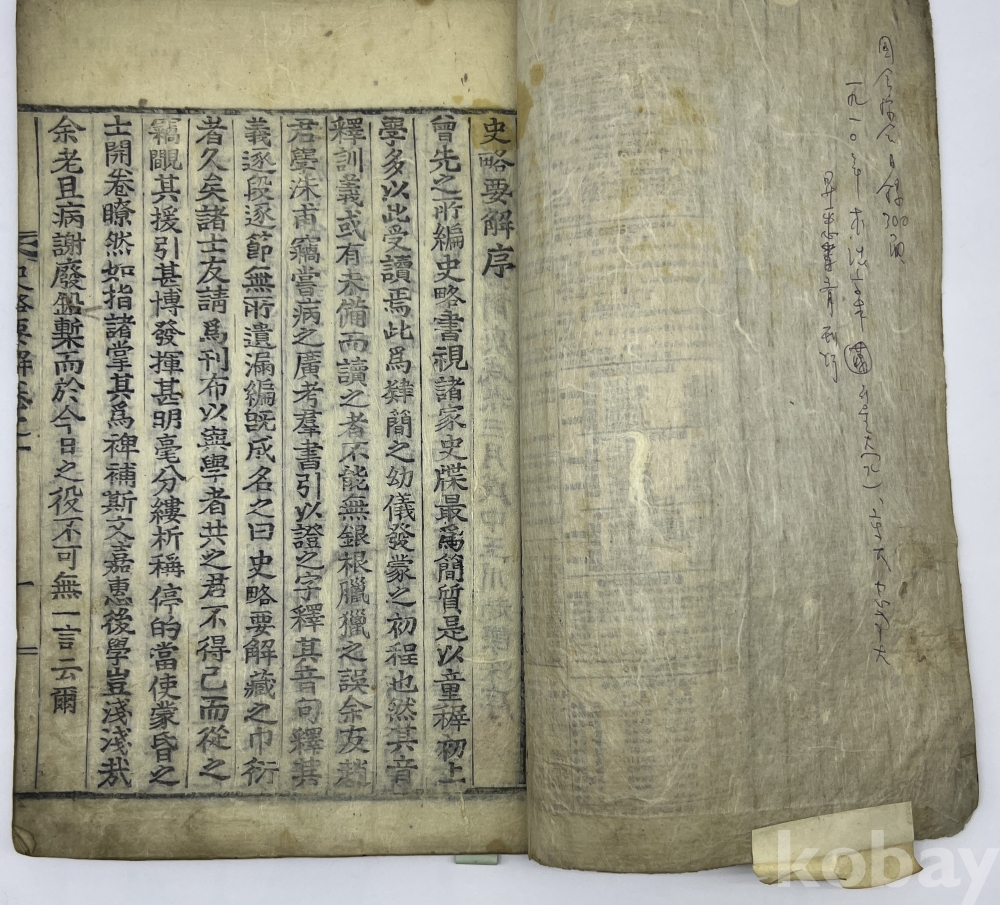 一九一〇年
史略要解序
曾先之所編史略書視諸家史牒最爲簡質是以童穉初上
學多以此受讀焉此爲肄簡之幼儀發蒙之初程也然其音
釋訓義或有未備而讀之者不能無銀根臘獵之誤余友趙
君晏洙甫竊嘗病之廣考羣書引以證之字釋其音句釋其
義逐段逐節無所遺漏編旣成名之曰史略要解藏之巾衍
者久矣諸士友請爲刊布以與學者共之君不得已而從之
竊覵其援引甚博發揮甚明毫分縷析稱停的當使蒙昏之
士開卷瞭然如指諸掌其爲裨補斯文嘉惠後學豈淺淺㢤
余老且病謝廢鉛槧而於今日之役不可無一言云爾
史略要解卷之一 一
kobay